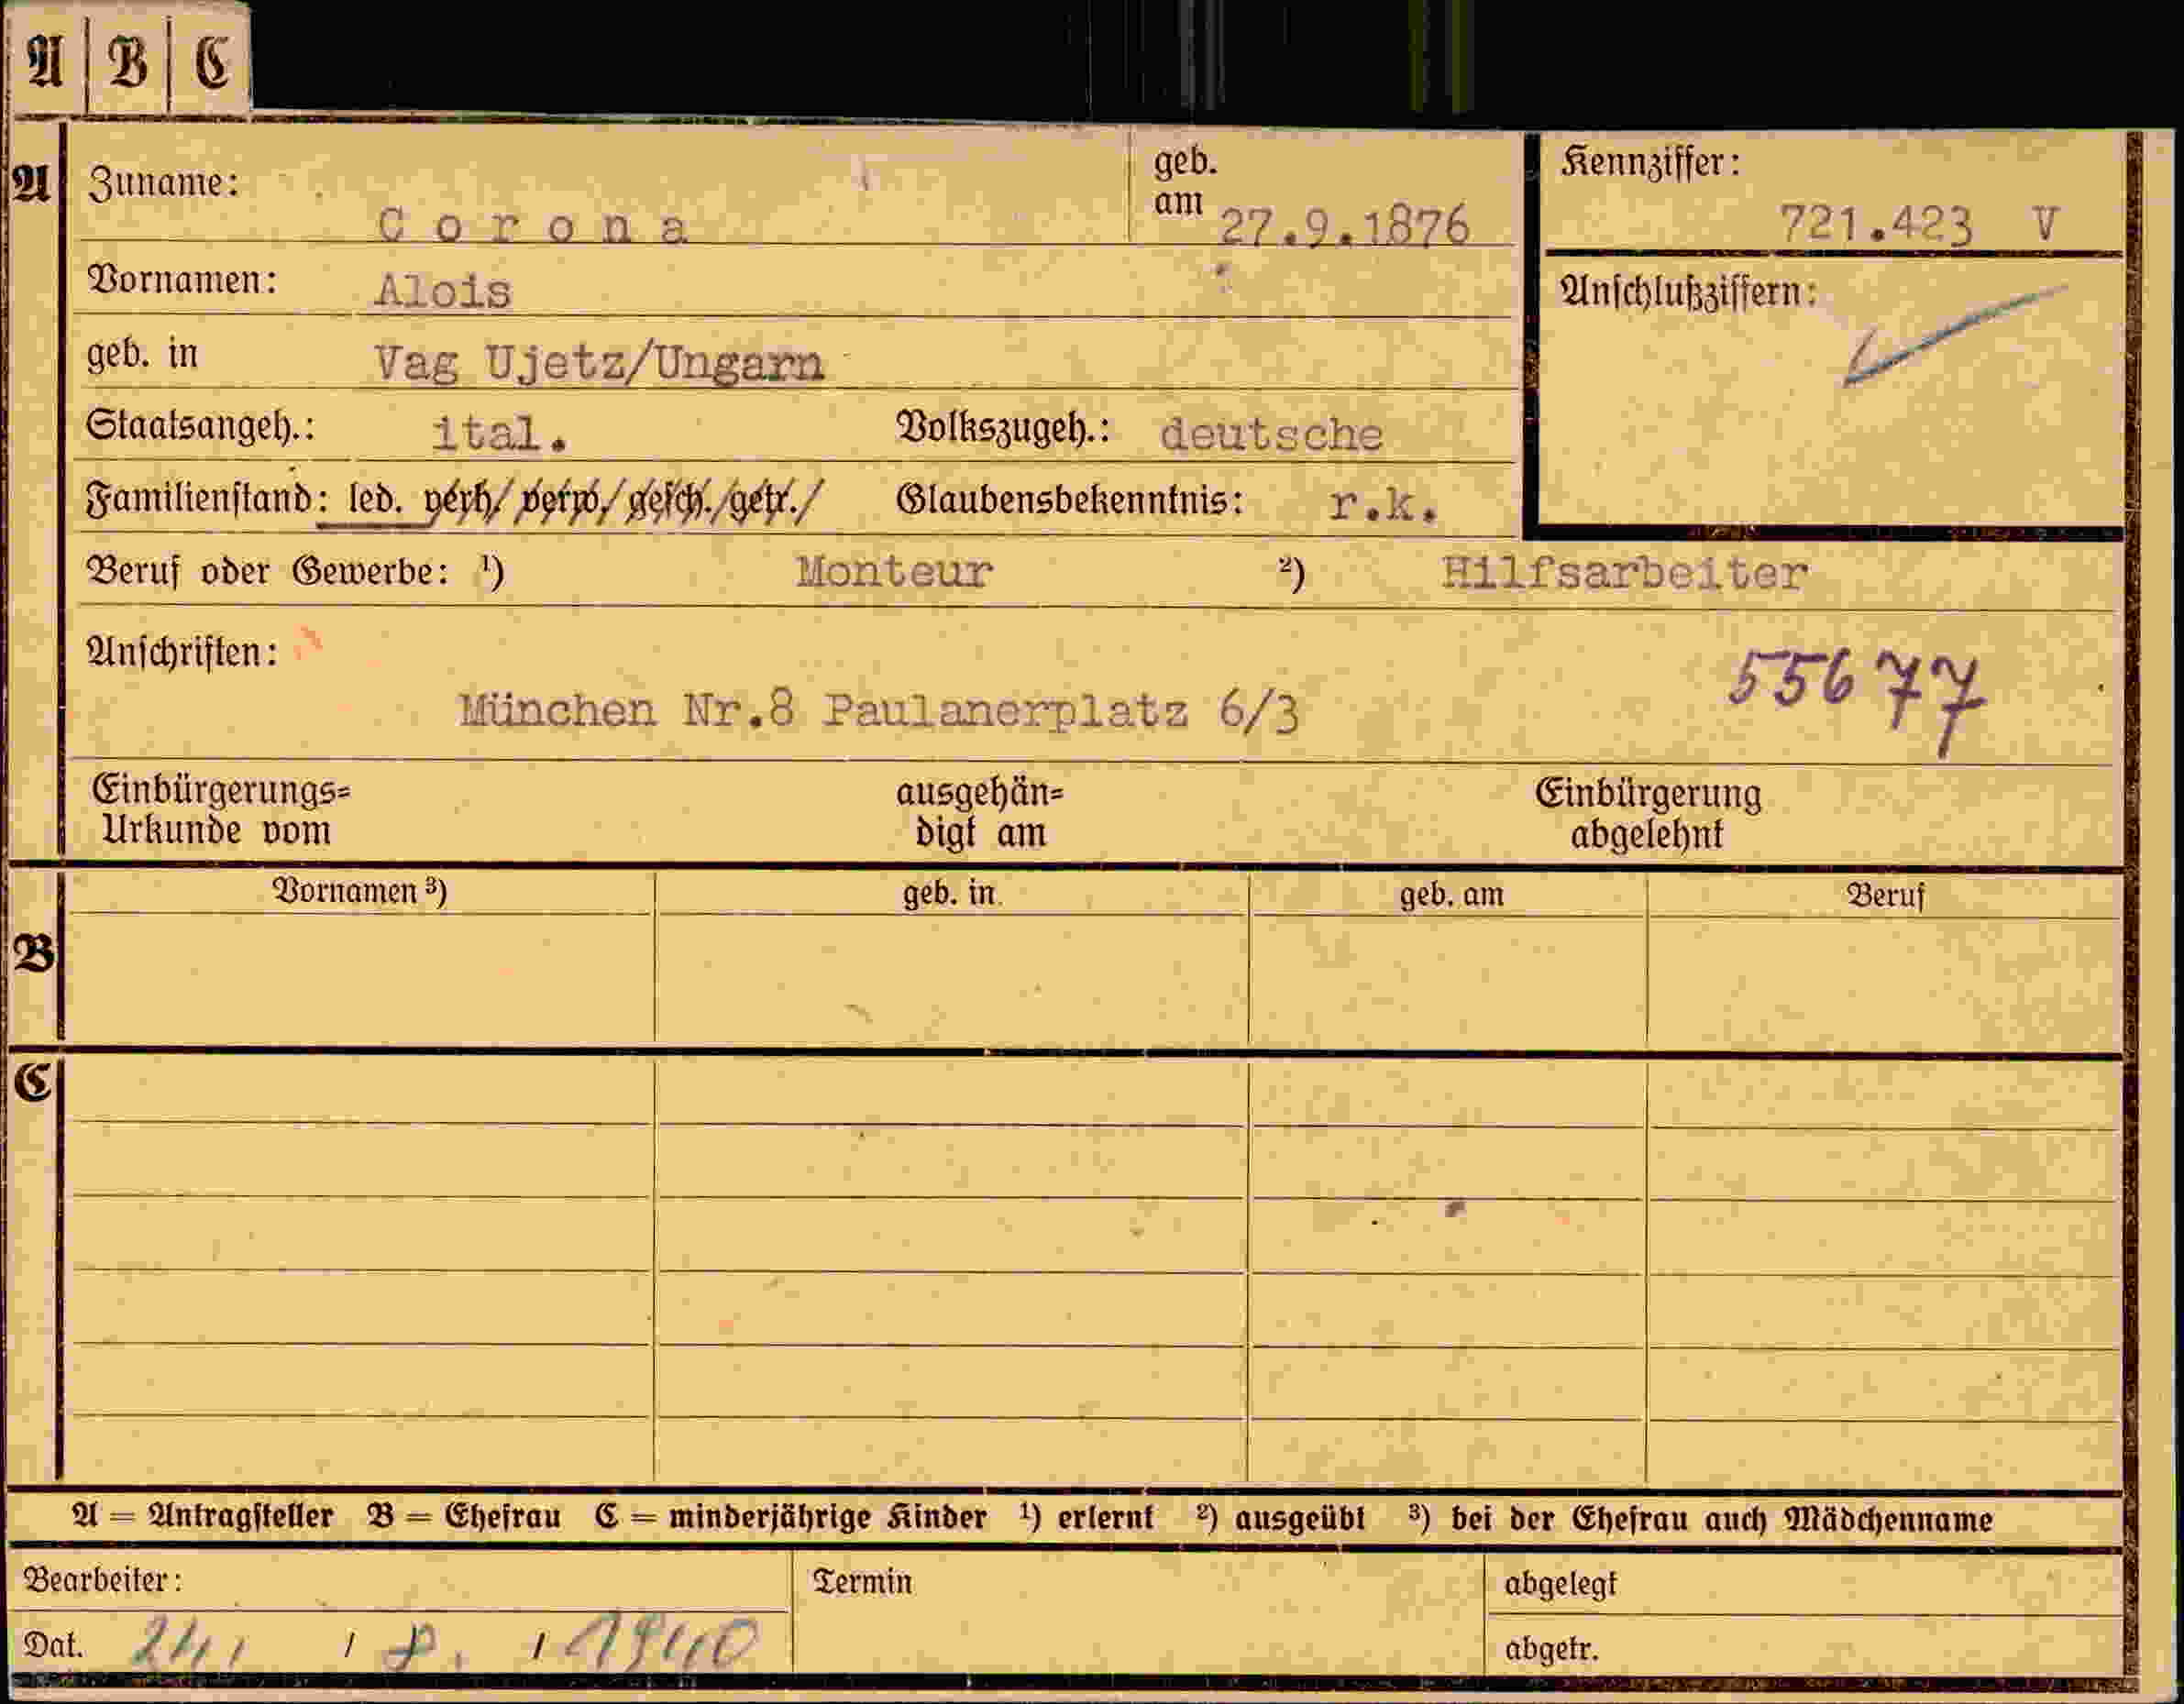 A | B | C
A Zuname: Corona geb. am 27.9.1876 Kennziffer: 721.423 V
Vornamen: Alois Anschlußziffern:
geb. in Vag Ujetz/Ungarn
Staatsangeh.: ital. Volkszugeh.: deutsche
Familienstand: led. verh/ verw./ gesch./getr./ Glaubensbekenntnis: r.k.
Beruf oder Gewerbe: ¹) Monteur ²) Hilfsarbeiter
Anschriften: 55677
München Nr.8 Paulanerplatz 6/3
Einbürgerungs= ausgehän= Einbürgerung
Urkunde vom digt am abgelehnt
Vornamen ³) geb. in geb. am Beruf
B
C
A = Antragsteller B = Ehefrau C = minderjährige Kinder ¹) erlernt ²) ausgeübt ³) bei der Ehefrau auch Mädchenname
Bearbeiter: Termin abgelegt
Dat. 24. / 8. / 1940 abgetr.